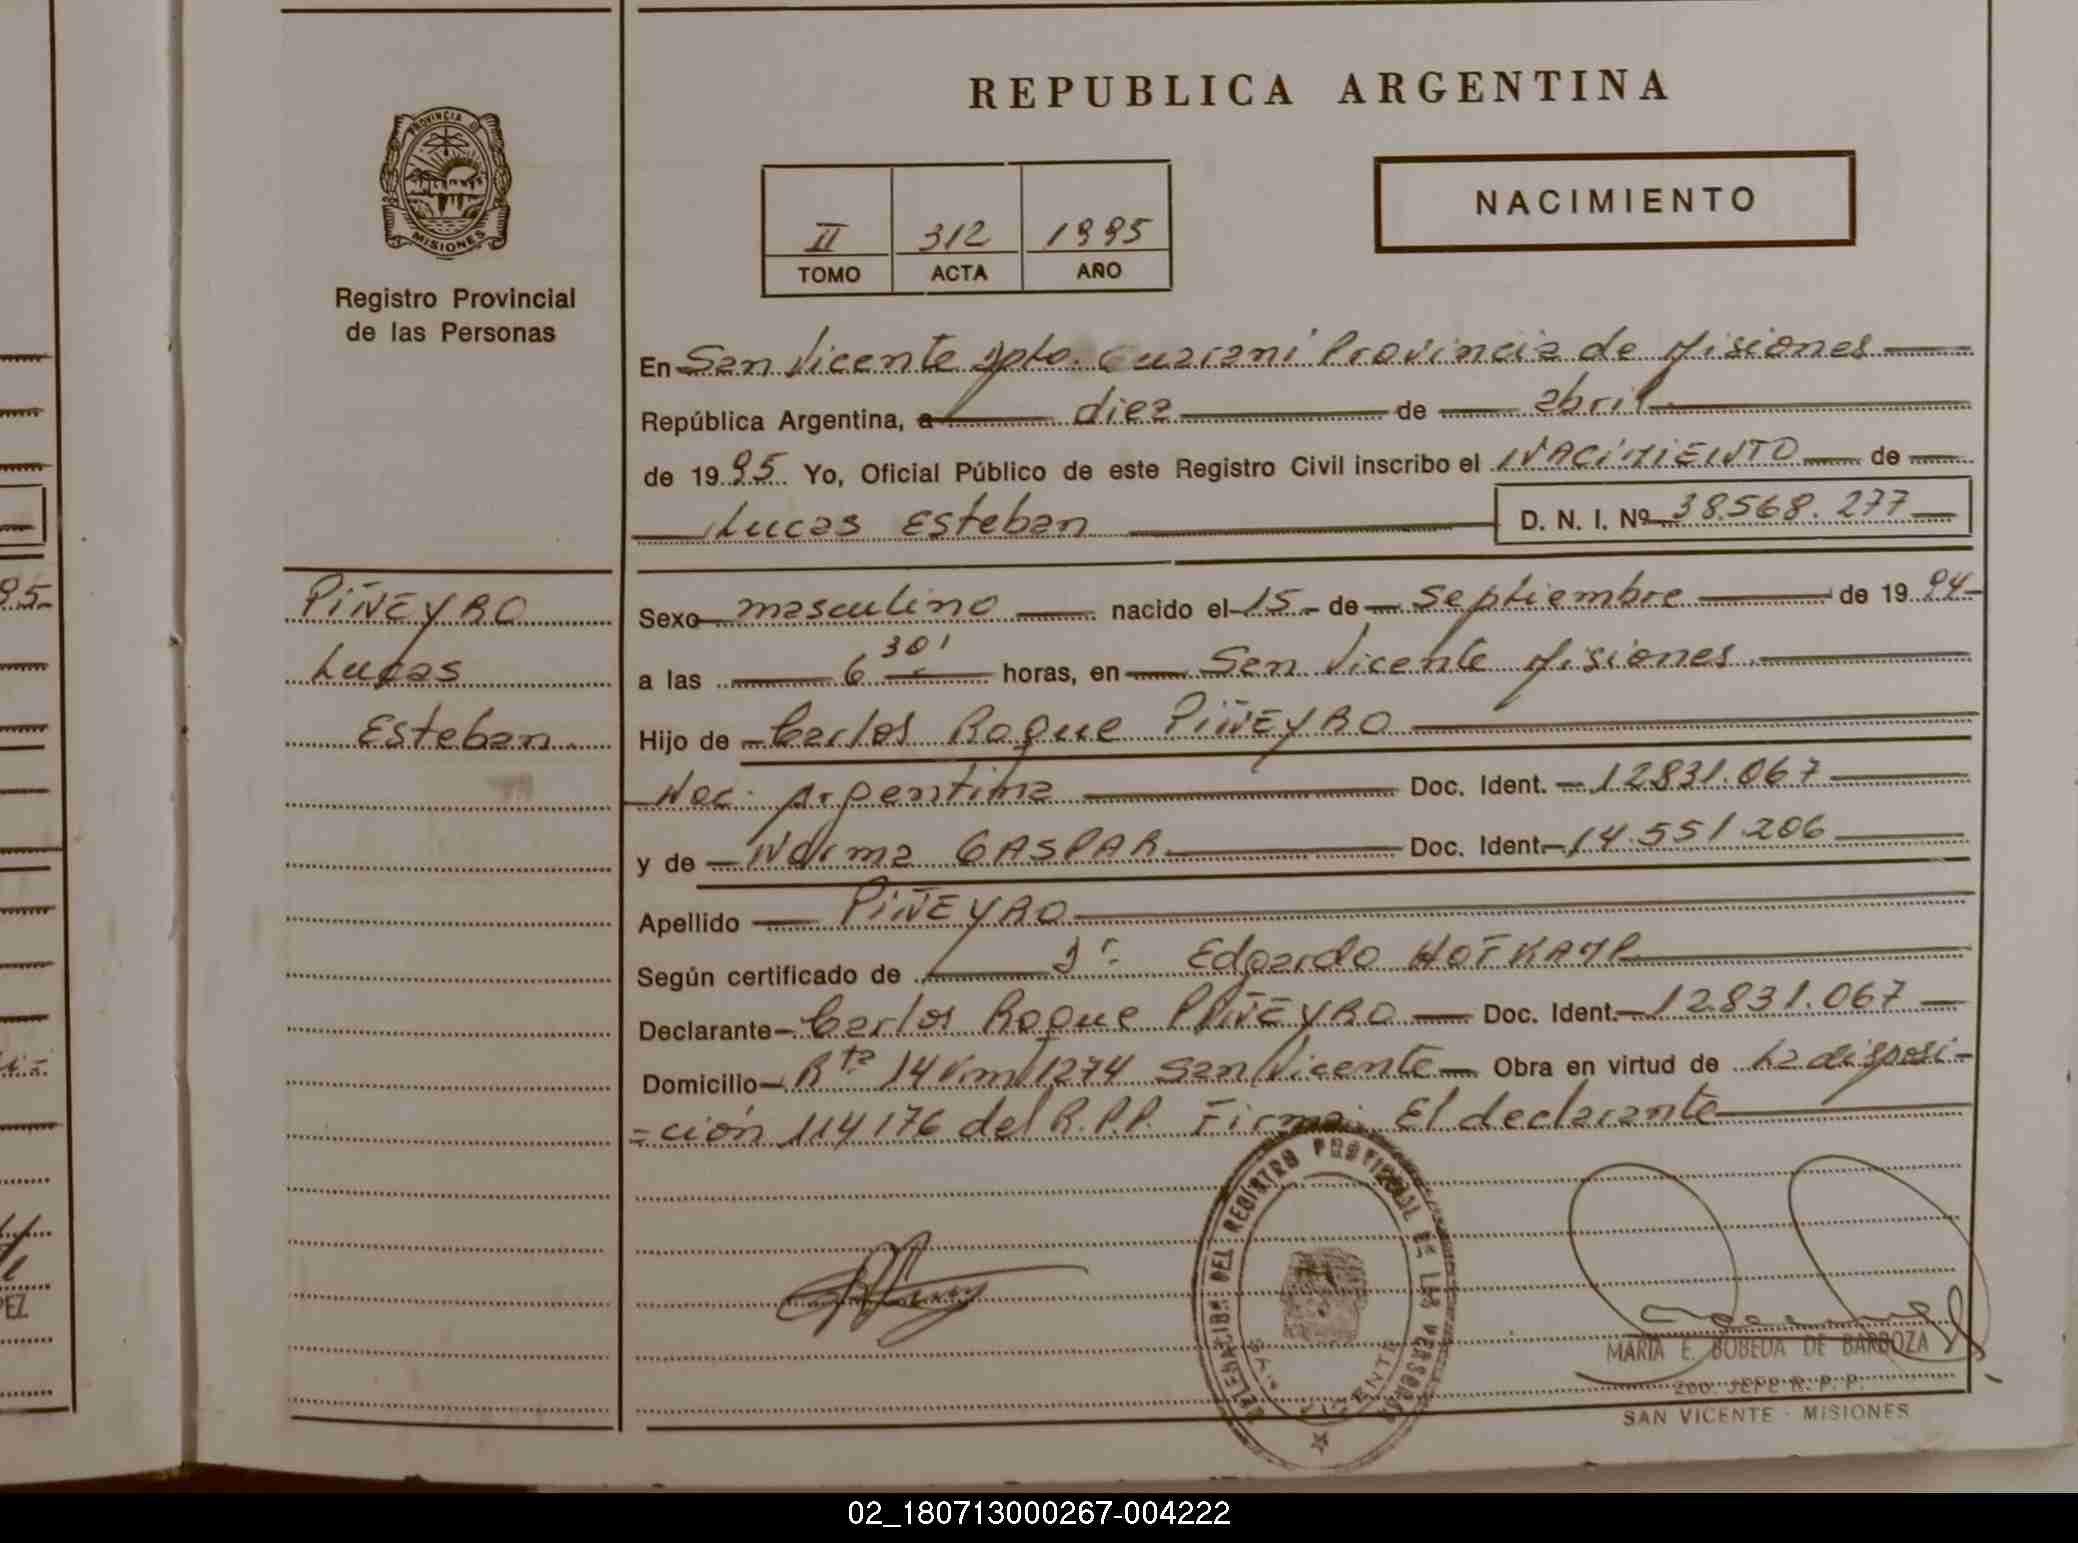 REPUBLICA ARGENTINA
PROVINCIA DE
MISIONES
Registro Provincial
de las Personas
NACIMIENTO
II 312 1995
TOMO ACTA AÑO
En San Vicente Dpto. Guarani Provincia de Misiones
República Argentina, a diez de abril
de 1995 Yo, Oficial Público de este Registro Civil inscribo el NACIMIENTO de
Lucas Esteban D. N. I. Nº 38.568.277
PIÑEYRO
Lucas
Esteban
Sexo masculino nacido el 15 de Septiembre de 1994
a las 6 30' horas, en San Vicente Misiones
Hijo de Carlos Roque PIÑEYRO
Nac. Argentina Doc. Ident. 12831.067
y de Norma GASPAR Doc. Ident. 14.551.206
Apellido PIÑEYRO
Según certificado de Dr. Edgardo HOFKAMP
Declarante Carlos Roque PIÑEYRO Doc. Ident. 12831.067
Domicilio Rta 14 Km 1274 San Vicente Obra en virtud de La disposi-
-ción 114176 del R.P.P. Firma: El declarante
DELEGACION DEL REGISTRO PROVINCIAL DE LAS PERSONAS
SAN VICENTE
MARIA E. BOBEDA DE BARBOZA
2do. JEFE R. P. P.
SAN VICENTE - MISIONES
95
PEZ
02_180713000267-004222